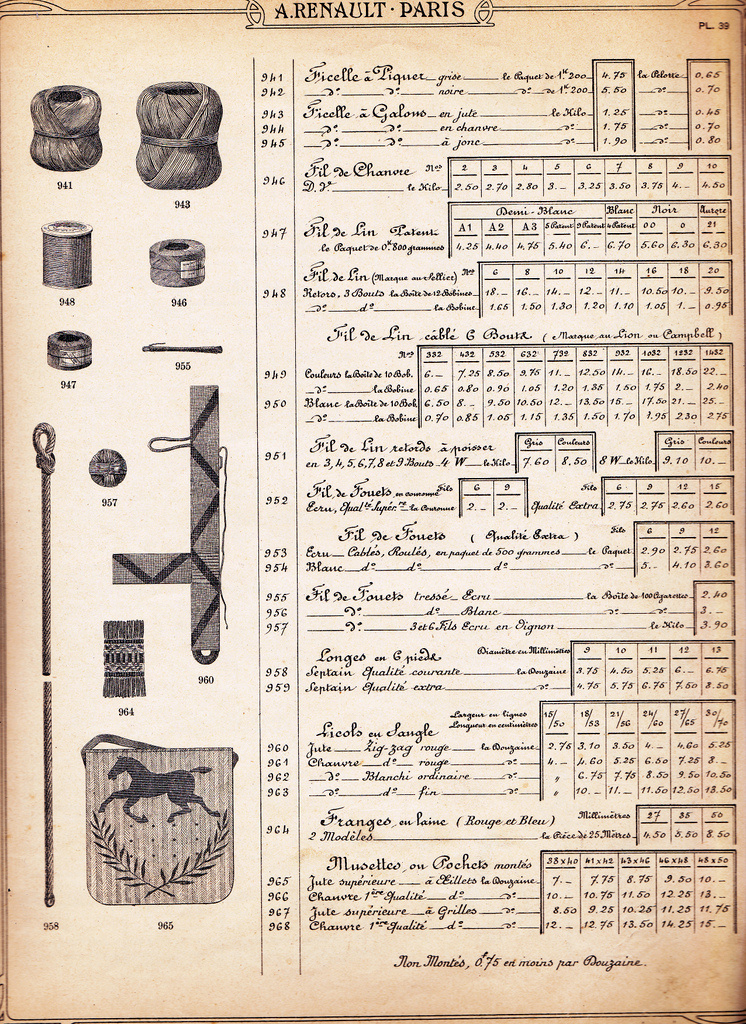 A. RENAULT · PARIS
PL. 39
941 Ficelle à Piquer grise le Paquet de 1ᵏ200 4.75 la Pelote 0.65
942 dᵒ dᵒ noire dᵒ de 1ᵏ200 5.50 dᵒ 0.70
943 Ficelle à Galons en jute le Kilo 1.25 dᵒ 0.45
944 dᵒ dᵒ en chanvre dᵒ 1.75 dᵒ 0.70
945 dᵒ dᵒ à jonc dᵒ 1.90 dᵒ 0.80
Fil de Chanvre Nᵒˢ 2 3 4 5 6 7 8 9 10
946 D.V. le Kilo 2.50 2.70 2.80 3._ 3.25 3.50 3.75 4._ 4.50
Demi-Blanc Blanc Noir Aurore
947 Fil de Lin Patent A1 A2 A3 5 Patent 9 Patent 21 00 0 21
le Paquet de 0ᵏ800 grammes 4.25 4.40 4.75 5.40 6._ 6.70 5.60 6.30 6.30
Fil de Lin (Marque au Sellier) Nᵒˢ 6 8 10 12 14 16 18 20
948 Retors, 3 Bouts la Boîte de 12 Bobines 18._ 16._ 14._ 12._ 11._ 10.50 10._ 9.50
dᵒ dᵒ la Bobine 1.65 1.50 1.30 1.20 1.10 1.05 1._ 0.95
Fil de Lin câblé 6 Bouts (Marque au Lion ou Campbell)
Nᵒˢ 332 432 532 632 732 832 932 1032 1232 1432
949 Couleurs la Boîte de 10 Bob. 6._ 7.25 8.50 9.75 11._ 12.50 14._ 16._ 18.50 22._
dᵒ la Bobine 0.65 0.80 0.90 1.05 1.20 1.35 1.50 1.75 2._ 2.40
950 Blanc la Boîte de 10 Bob. 6.50 8._ 9.50 10.50 12._ 13.50 15._ 17.50 21._ 25._
dᵒ la Bobine 0.70 0.85 1.05 1.15 1.35 1.50 1.70 1.95 2.30 2.75
951 Fil de Lin retords à poisser Gris Couleurs Gris Couleurs
en 3, 4, 5, 6, 7, 8 et 9 Bouts 4 W le Kilo 7.60 8.50 8 W le Kilo 9.10 10._
952 Fil de Fouets, en couronne Fils 6 9 Fils 6 9 12 15
Ecru, Qualᵗᵉ Supérʳᵉ la Couronne 2._ 2._ Qualité Extra 2.75 2.75 2.60 2.60
Fil de Fouets (Qualité Extra) Fils 6 9 12
953 Ecru Cablés, Roulés, en paquet de 500 grammes le Paquet 2.90 2.75 2.60
954 Blanc dᵒ dᵒ dᵒ dᵒ 5._ 4.10 3.60
955 Fil de Fouets tressé Ecru la Boîte de 100 Cigarettes 2.40
956 dᵒ dᵒ Blanc dᵒ dᵒ 3._
957 dᵒ 3 et 6 Fils Ecru en Oignon le Kilo 3.90
Longes en 6 pieds Diamètre en Millimètres 9 10 11 12 13
958 Septain Qualité courante la Douzaine 3.75 4.50 5.25 6._ 6.75
959 Septain Qualité extra dᵒ 4.75 5.75 6.75 7.50 8.50
Licols en Sangle Largeur en lignes 15/ 18/ 21/ 24/ 27/ 30/
Longueur en centimètres 50 53 56 60 65 70
960 Jute Zig-zag rouge la Douzaine 2.75 3.10 3.50 4._ 4.60 5.25
961 Chanvre dᵒ rouge dᵒ 4._ 4.60 5.25 6.50 7.25 8._
962 dᵒ Blanchi ordinaire dᵒ " 6.75 7.75 8.50 9.50 10.50
963 dᵒ dᵒ fin dᵒ " 10._ 11._ 11.50 12.50 13.50
964 Franges, en laine (Rouge et Bleu) Millimètres 27 35 50
2 Modèles la Pièce de 25 Mètres 4.50 5.50 8.50
Musettes, ou Pochets montés 38x40 41x42 43x46 46x48 48x50
965 Jute supérieure à Œillets la Douzaine 7._ 7.75 8.75 9.50 10._
966 Chanvre 1ᵉʳᵉ Qualité dᵒ dᵒ 10._ 10.75 11.50 12.25 13._
967 Jute supérieure à Grilles dᵒ 8.50 9.25 10.25 11.25 11.75
968 Chanvre 1ᵉʳᵉ Qualité dᵒ dᵒ 12._ 12.75 13.50 14.25 15._
Non Montés, 0ᶠ75 en moins par Douzaine.
941
943
948
946
947
955
957
960
964
958
965